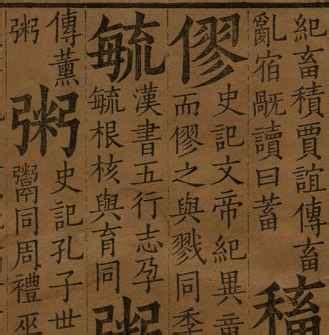 紀畜積賈誼傳畜
亂宿旤讀曰蓄
稸
僇
史記文帝紀異
而僇之與戮同季
毓
漢書五行志孕
毓根核與育同
粥
傳薰
粥
粥
史記孔子世
鬻同周禮